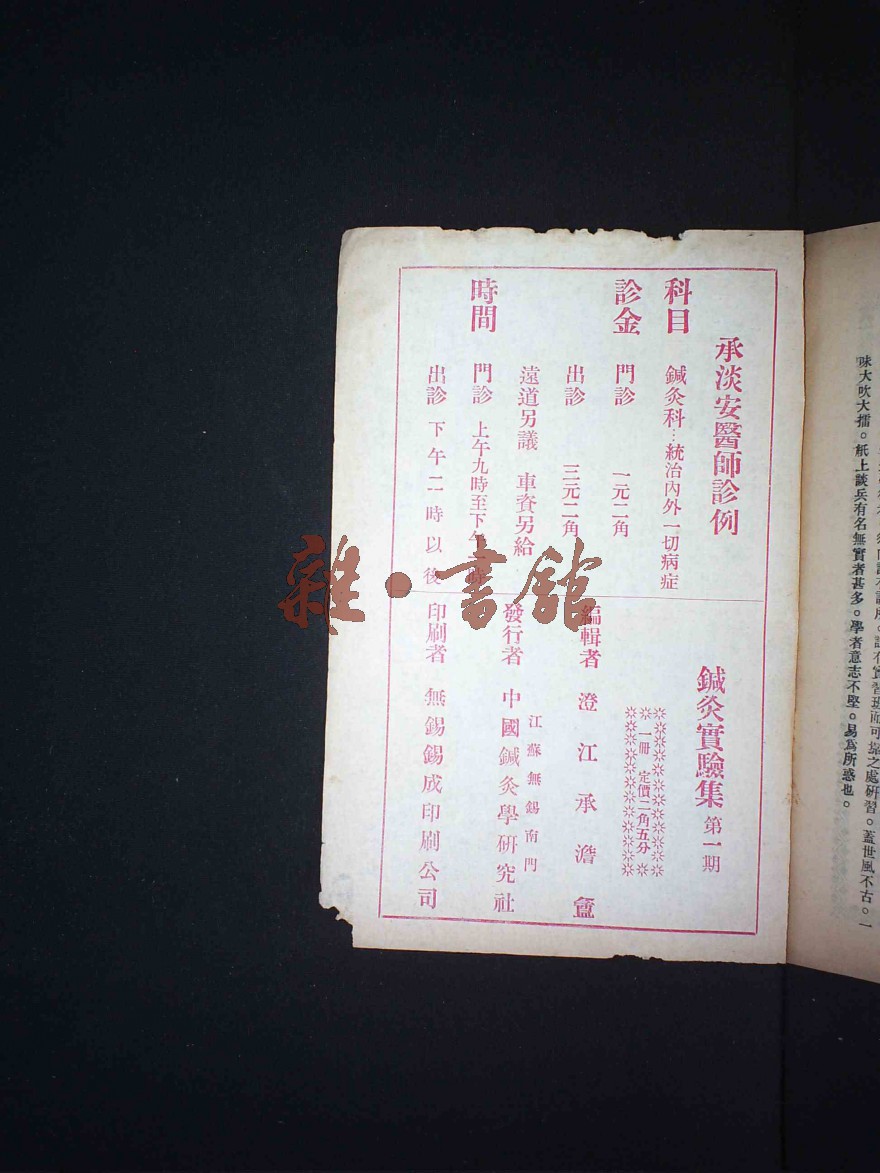 味大吹大擂。紙上談兵有名無實者甚多。學者意志不堅。易為所惑也。
承淡安醫師診例
科目 鍼灸科…統治內外一切病症
診金 門診 一元二角
出診 三元二角
遠道另議 車資另給
時間 門診 上午九時至下午
出診 下午二時以後
鍼灸實驗集 第一期
一冊 定價二角五分
編輯者 澄江承澹盦
江蘇無錫南門
發行者 中國鍼灸學研究社
印刷者 無錫錫成印刷公司
雜·書館